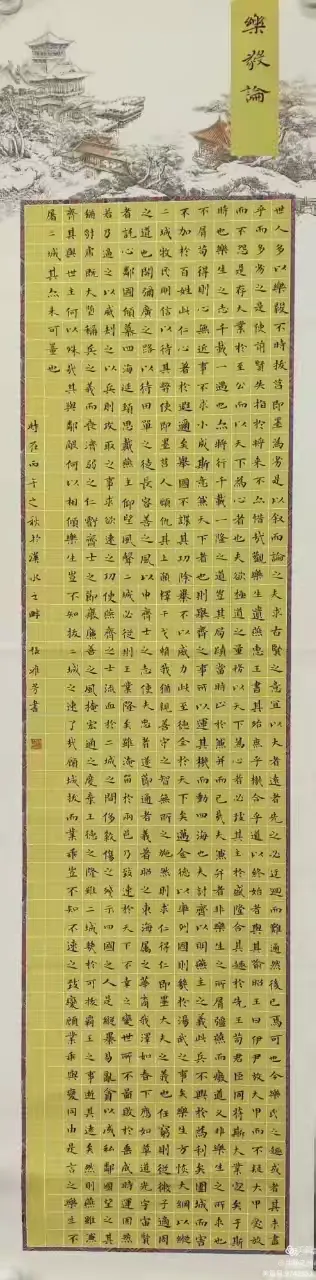 樂毅論
世人多以樂毅不時拔莒即墨為劣是以叙而論之夫求古賢之意宜以大者遠者先之必迂迴而難通然後已焉可也今樂氏之趣或者其未盡
乎而多劣之是使前賢失指於將來不亦惜哉觀樂生遺燕惠王書其殆庶乎機合乎道以終始者與其喻昭王曰伊尹放大甲而不疑大甲受放
而不怨是存大業於至公而以天下為心者也夫欲極道之量務以天下為心者必致其主於盛隆合其趣於先王苟君臣同符斯大業定矣于斯
時也樂生之志千載一遇也亦將行千載一隆之道豈其局蹟當時止於兼并而已哉夫兼并者非樂生之所屑彊燕而廢道又非樂生之所求也
不屑苟得則心無近事不求小成斯意兼天下者也則舉齊之事所以運其機而動四海也夫討齊以明燕主之義此兵不興於為利矣圍城而害
不加於百姓此仁心著於遐邇矣舉國不謀其功除暴不以威力此至德全於天下矣邁全德以率列國則幾於湯武之事矣樂生方恢大綱以縱
二城牧民明信以待其弊使即墨莒人顧仇其上願釋干戈賴我猶親善守之智無所之施然則求仁得仁即墨大夫之義也任窮則從微子適周
之道也開彌廣之路以待田單之徒長容善之風以申齊士之志使夫忠者遂節通者義著昭之東海屬之華裔我澤如春下應如草道光宇宙賢
者託心鄰國傾慕四海延頸思戴燕主仰望風聲二城必從則王業隆矣雖淹留於兩邑乃致速於天下不幸之變世所不圖敗於垂成時運固然
若乃逼之以威劫之以兵則攻取之事求欲速之功使燕齊之士流血於二城之間侈殺傷之殘示四國之人是縱暴易亂貪以成私鄰國望之其
猶豺虎既大墮稱兵之義而喪濟弱之仁虧齊士之節廢廉善之風掩宏通之度棄王德之隆雖二城幾於可拔霸王之事逝其遠矣然則燕雖兼
齊其與世主何以殊哉其與鄰敵何以相傾樂生豈不知拔二城之速了哉顧城拔而業乖豈不知不速之致變顧業乖與變同由是言之樂生不
屠二城其亦未可量也
時在丙子之秋於漢水之畔 書